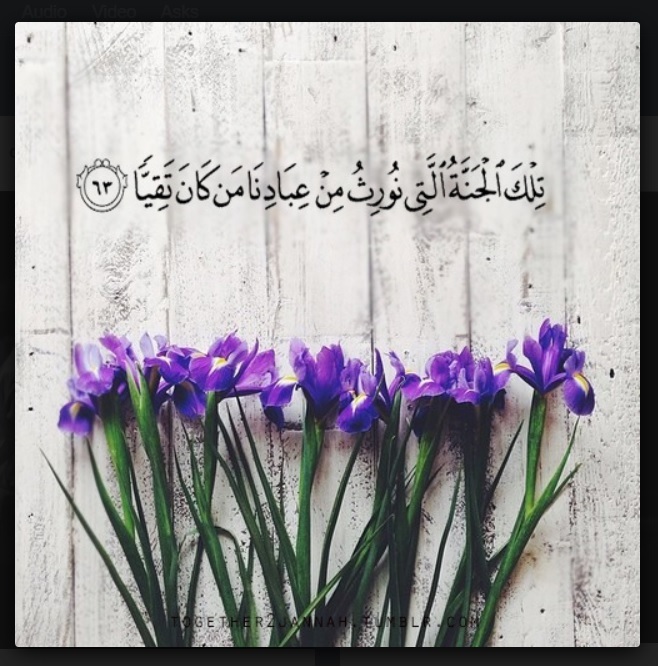 Audio Video Asks
تِلْكَ ٱلْجَنَّةُ ٱلَّتِى نُورِثُ مِنْ عِبَادِنَا مَن كَانَ تَقِيًّا ٦٣
TOGETHER2JANNAH.TUMBLR.COM